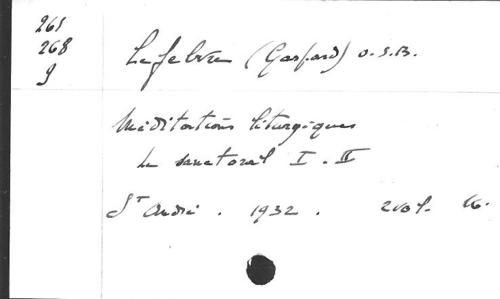 265
268
9
Lefebvre (Gaspard) O.S.B.
Méditations liturgiques
Le sanctoral I. II
St André. 1932. 2 vol. 16.